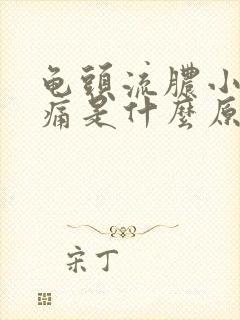 龟頭流膿小
痛是什麼原
宋丁